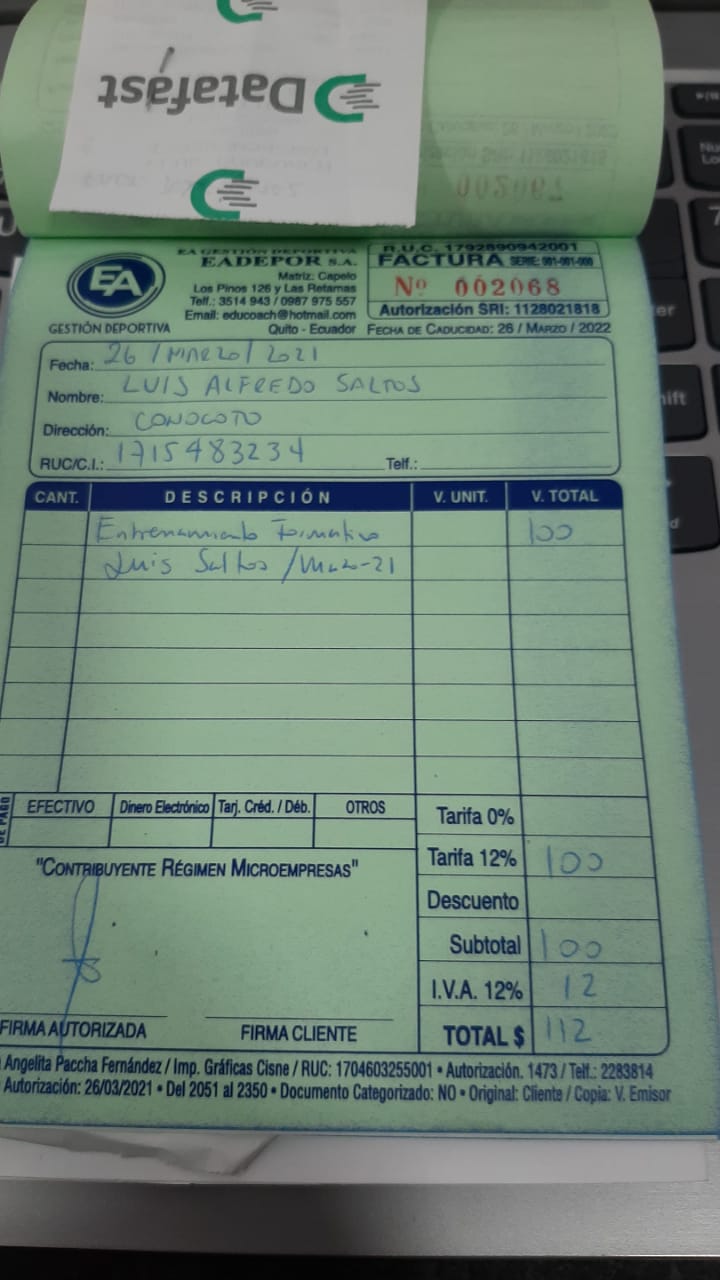 Datafast
002067
EA
GESTIÓN DEPORTIVA
EA GESTIÓN DEPORTIVA
EADEPOR S.A.
Matriz: Capelo
Los Pinos 126 y Las Retamas
Telf.: 3514 943 / 0987 975 557
Email: educoach@hotmail.com
Quito - Ecuador
R.U.C. 1792890942001
FACTURA SERIE: 001-001-000
Nº 002068
Autorización SRI: 1128021818
FECHA DE CADUCIDAD: 26 / MARZO / 2022
Fecha: 26 / MARZO / 2021
Nombre: LUIS ALFREDO SALTOS
Dirección: CONOCOTO
RUC/C.I.: 1715483234 Telf.:
CANT. DESCRIPCIÓN V. UNIT. V. TOTAL
Entrenamiento Formativo 100
Luis Saltos / Marzo-21
DE PAGO
EFECTIVO Dinero Electrónico Tarj. Créd. / Déb. OTROS
Tarifa 0%
Tarifa 12% 100
Descuento
Subtotal 100
I.V.A. 12% 12
TOTAL $ 112
"CONTRIBUYENTE RÉGIMEN MICROEMPRESAS"
FIRMA AUTORIZADA FIRMA CLIENTE
Angelita Paccha Fernández / Imp. Gráficas Cisne / RUC: 1704603255001 • Autorización. 1473 / Telf.: 2283814
Autorización: 26/03/2021 • Del 2051 al 2350 • Documento Categorizado: NO • Original: Cliente / Copia: V. Emisor